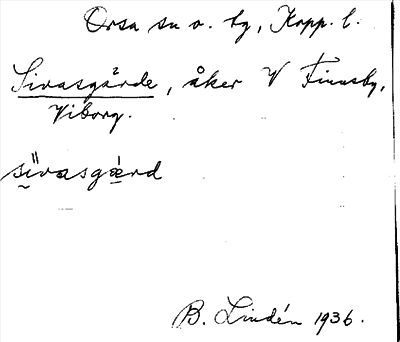 Orsa sn o. by, Kopp. l.
Sivasgärde, åker V Finnsby,
Viborg.
sïvasgǽrd
B. Lindén 1936.